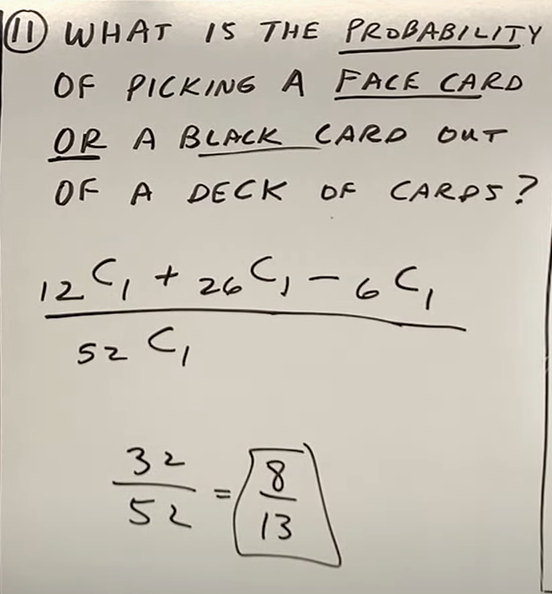 11 WHAT IS THE PROBABILITY
OF PICKING A FACE CARD
OR A BLACK CARD OUT
OF A DECK OF CARDS?
12C1 + 26C1 - 6C1
52C1
32
52
=
8
13